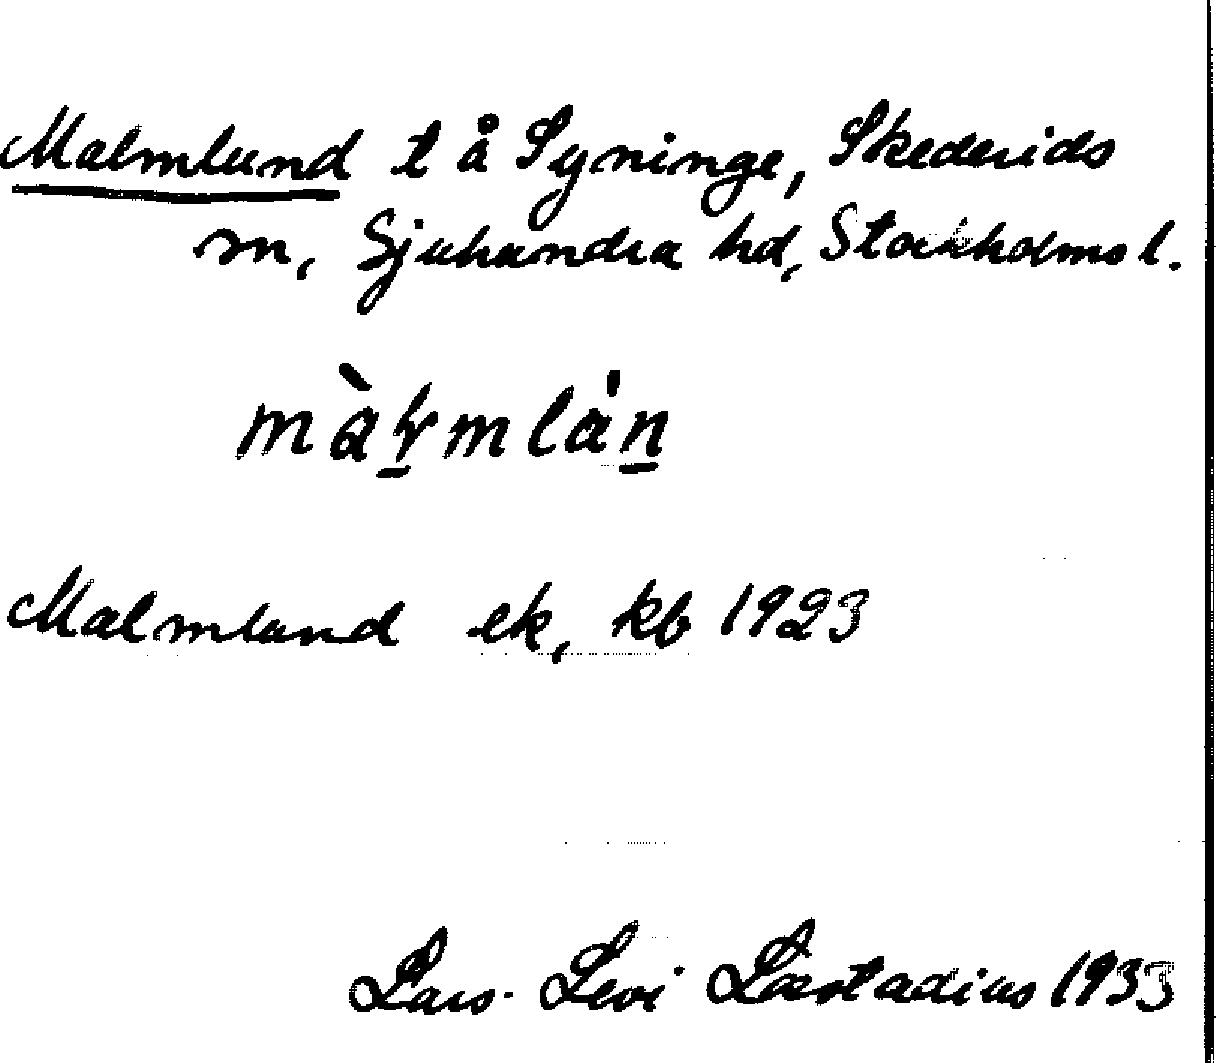 Malmlund t å Syninge, Skederids
sn, Sjuhundra hd, Stockholms l.
Malmlund ek, kb 1923
Lars-Levi Læstadius 1933